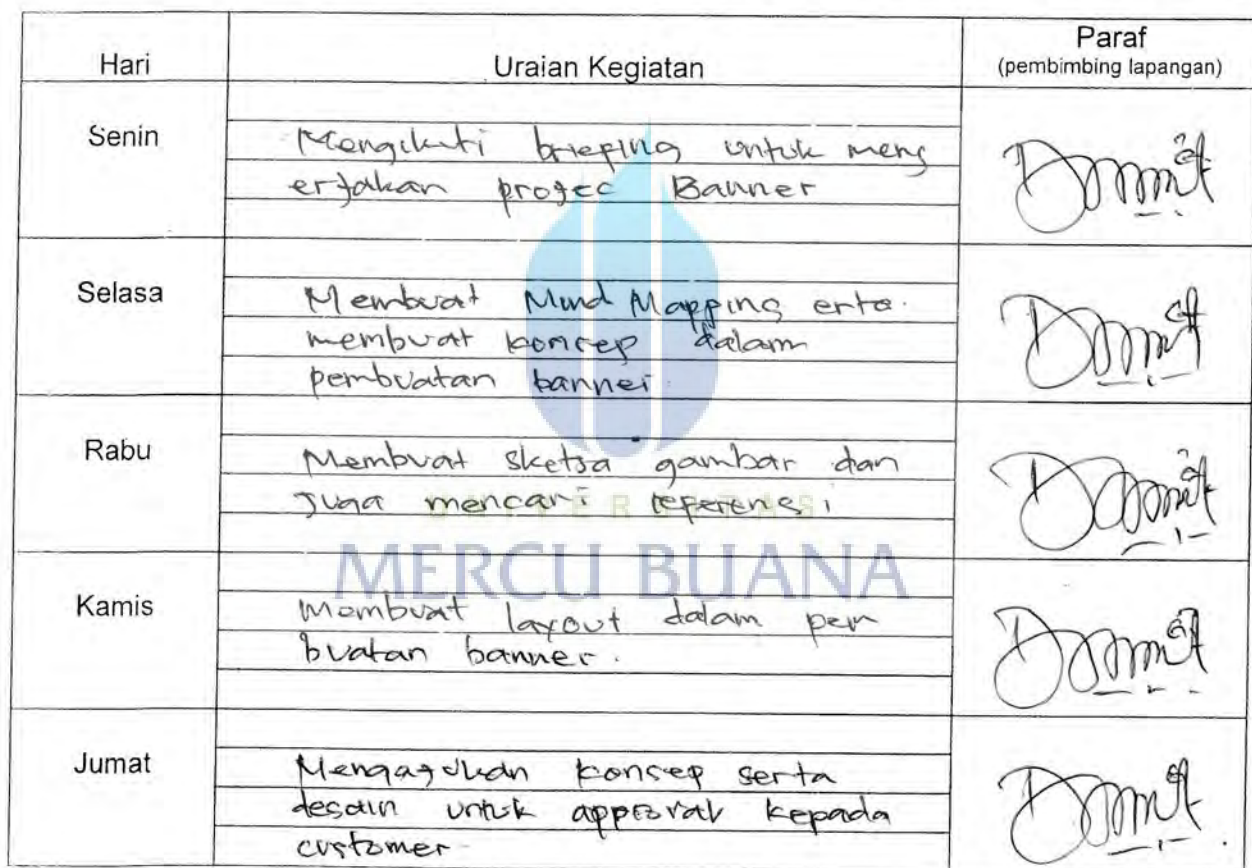 Hari Uraian Kegiatan Paraf
(pembimbing lapangan)
Senin
Mengikuti briefing untuk meng
erjakan projec Banner
Selasa
Membuat Mind Mapping erta
membuat konsep dalam
pembuatan banner.
Rabu
Membuat sketsa gambar dan
Juga mencari referensi
UNIVERSITAS
MERCU BUANA
Kamis
Membuat layout dalam pem
buatan banner.
Jumat
Mengajukan konsep serta
desain untuk approval kepada
customer